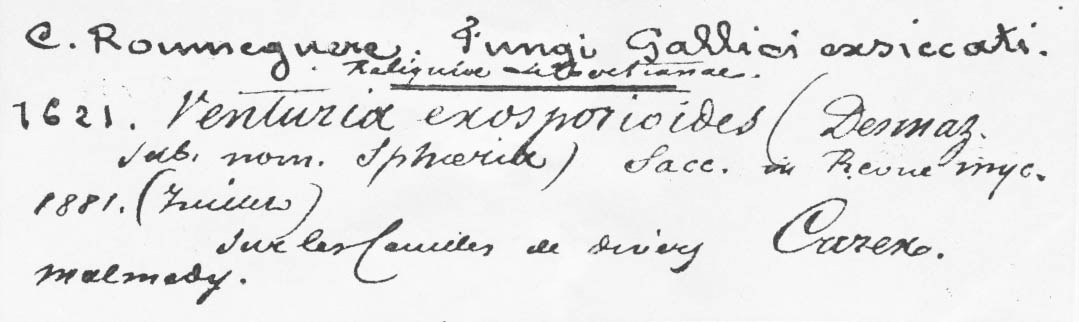 C. Roumeguere. Fungi Gallici exsiccati.
Reliquiae Libertianae.
1621. Venturia exosporioides (Desmaz.
sub. nom. Sphœria) Sacc. in Revue myc.
1881. (Juillet)
sur les feuilles de divers Carex.
Malmedy.